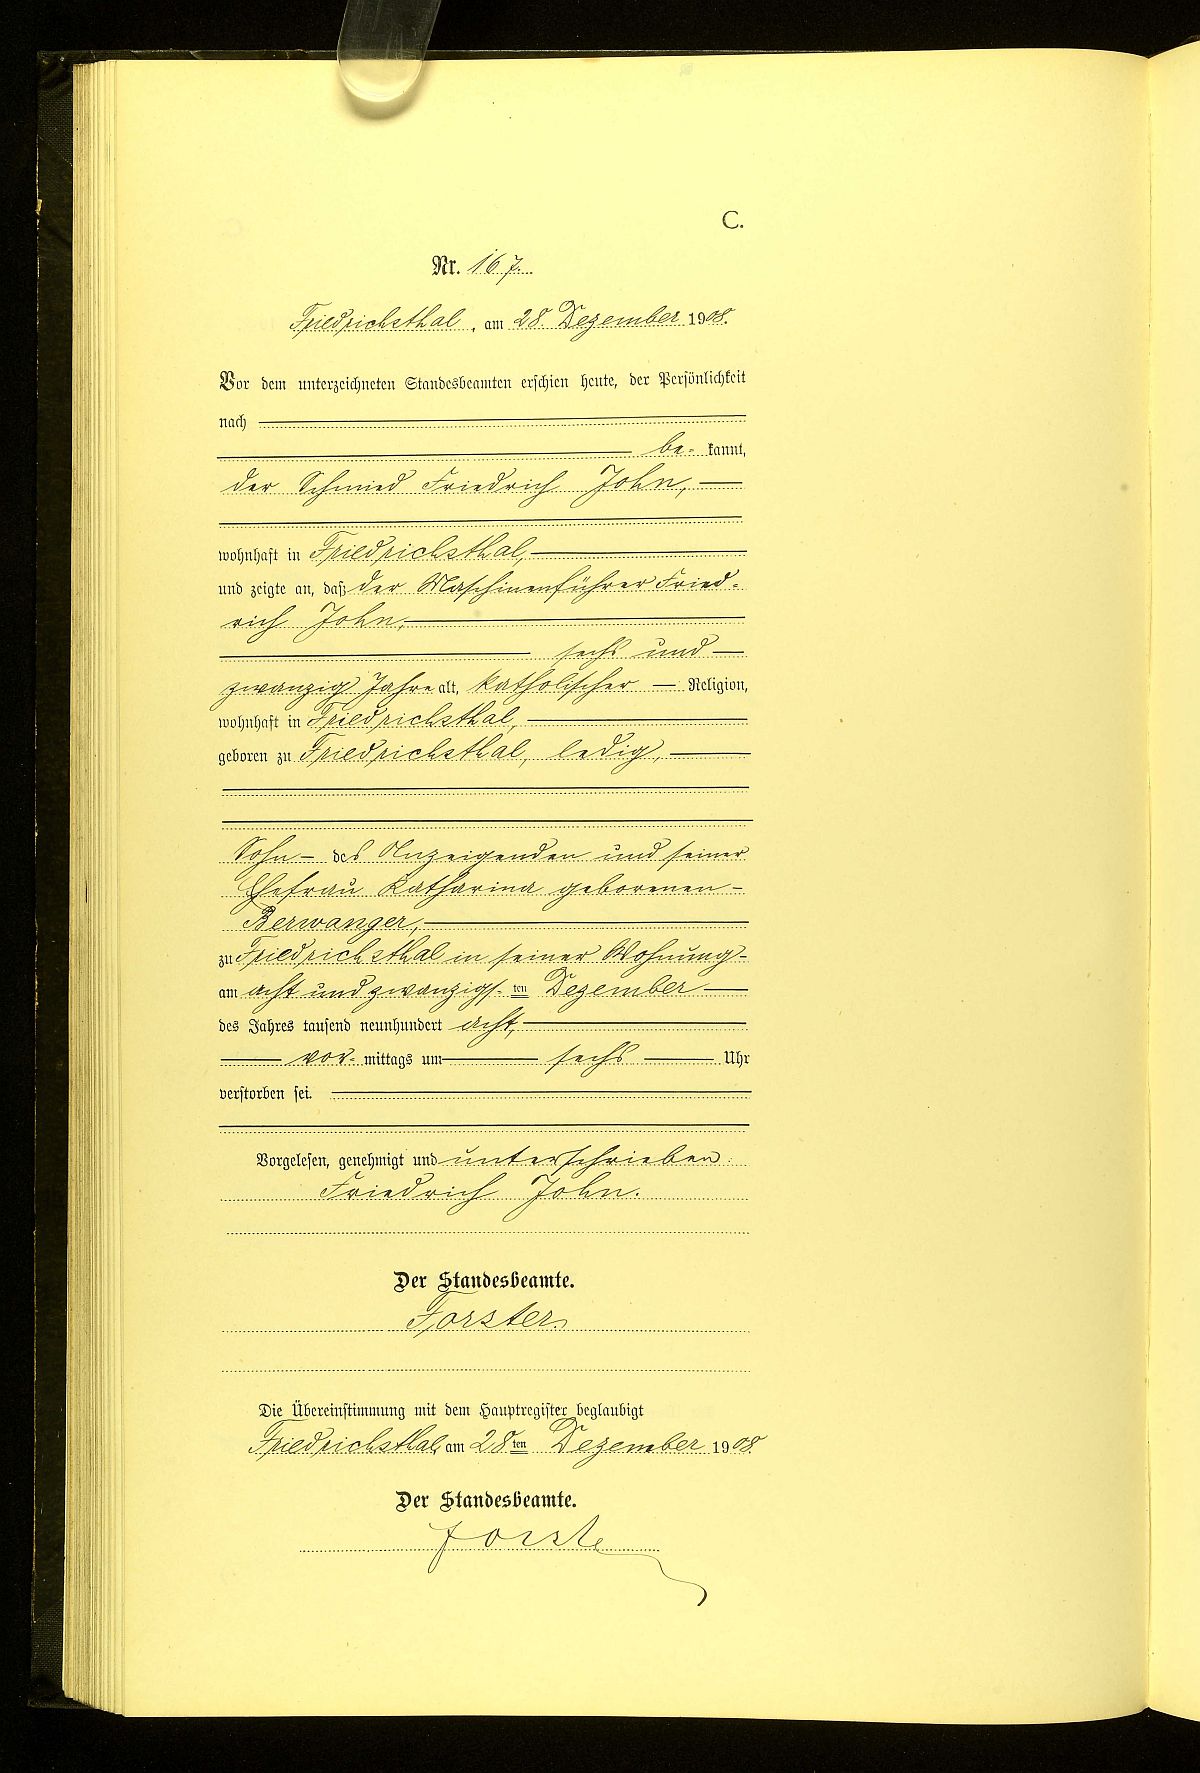 C.
Nr. 167.
Friedrichsthal, am 28. Dezember 1908.
Vor dem unterzeichneten Standesbeamten erschien heute, der Persönlichkeit
nach
be- kannt,
der Schmied Friedrich John,
wohnhaft in Friedrichsthal,
und zeigte an, daß der Maschinenführer Fried-
rich John,
sechs und
zwanzig Jahre alt, katholischer Religion,
wohnhaft in Friedrichsthal,
geboren zu Friedrichsthal, ledig,
Sohn des Anzeigenden und seiner
Ehefrau Katharina geborenen
Berwanger,
zu Friedrichsthal in seiner Wohnung
am acht und zwanzigs-ten Dezember
des Jahres tausend neunhundert acht,
vor- mittags um sechs Uhr
verstorben sei.
Vorgelesen, genehmigt und unterschrieben.
Friedrich John.
Der Standesbeamte.
Forster.
Die Übereinstimmung mit dem Hauptregister beglaubigt
Friedrichsthal, am 28ten Dezember 1908
Der Standesbeamte.
Forster